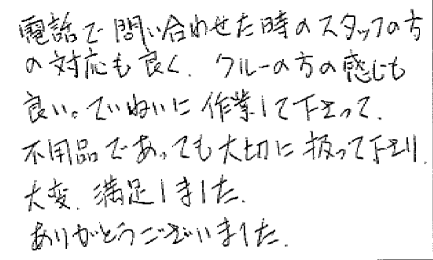 電話で問い合わせた時のスタッフの方
の対応も良く、クルーの方の感じも
良い。ていねいに作業して下さって、
不用品であっても大切に扱って下さり、
大変、満足しました。
ありがとうございました。